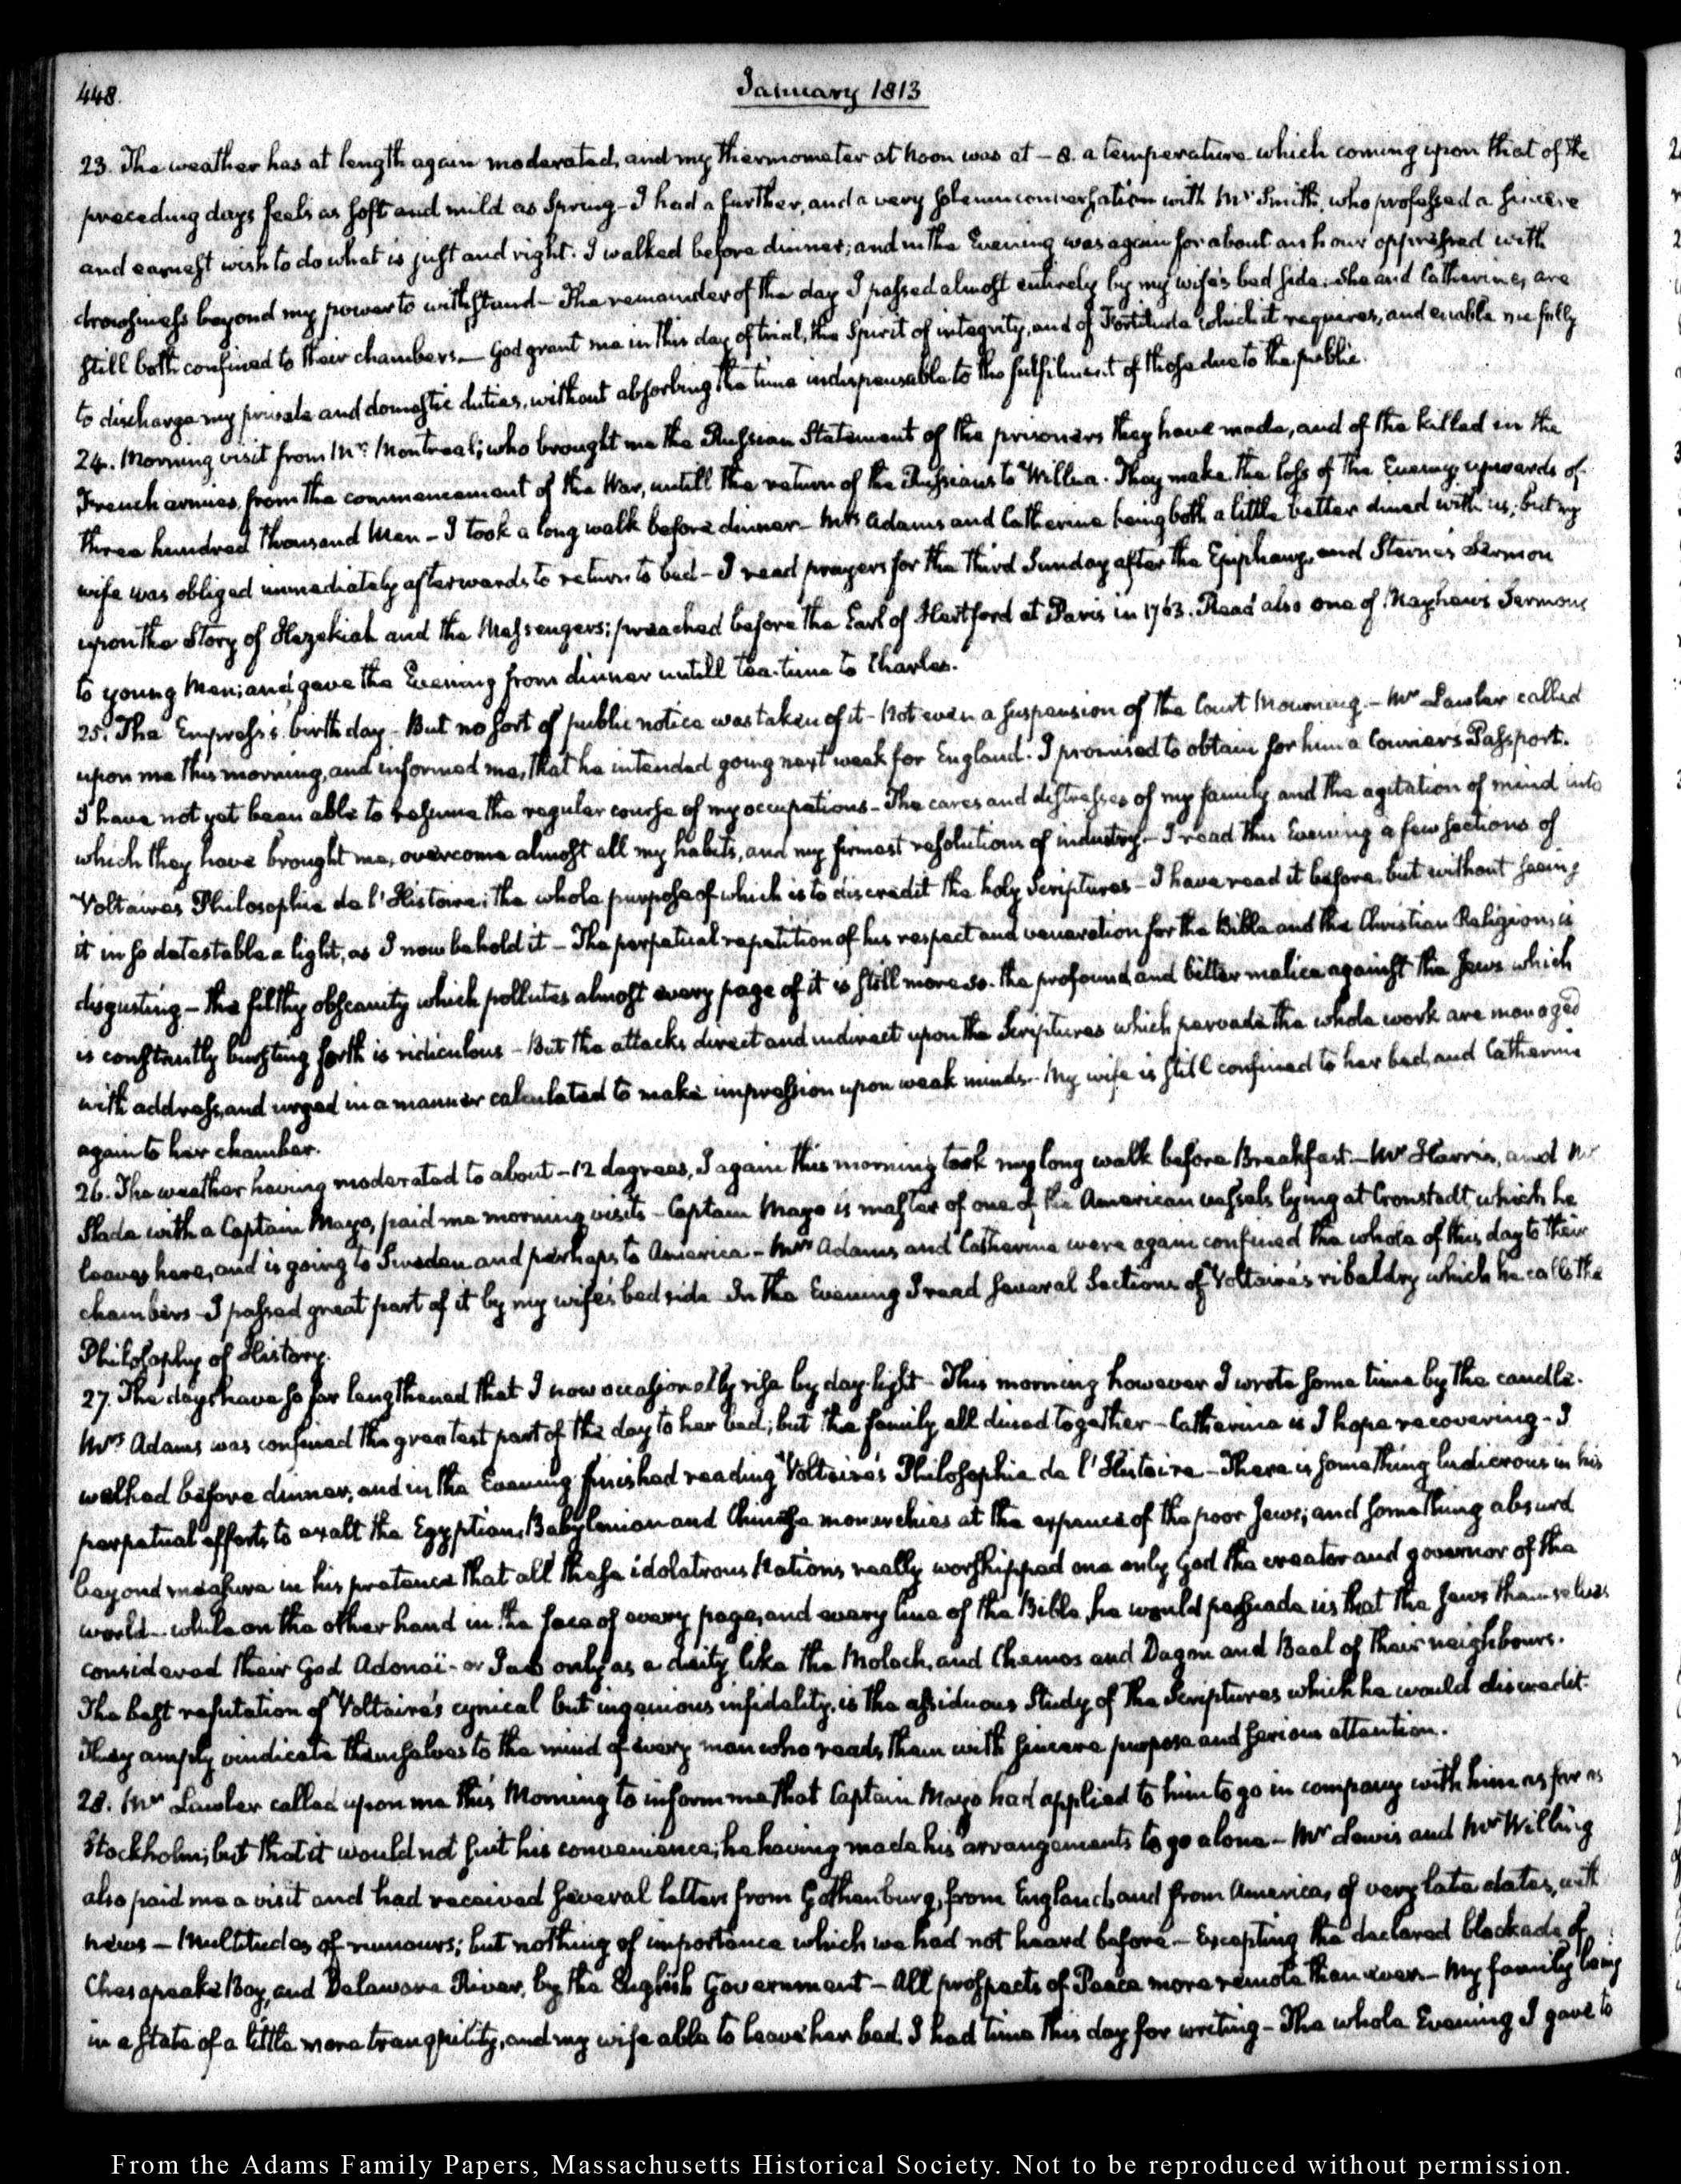 448.
January 1813
23. The weather has at length again moderated, and my thermometer at Noon was at - 8. a temperature which coming upon that of the
preceding days feels as soft and mild as Spring - I had a further, and a very solemn conversation with Mr Smith, who professed a sincere
and earnest wish to do what is just and right. I walked before dinner; and in the Evening was again for about an hour oppressed with
drowsiness beyond my power to withstand - The remainder of the day I passed almost entirely by my wife's bed side. She and Catherine, are
still both confined to their chambers. — God grant me in this day of trial, the Spirit of integrity, and of Fortitude which it requires, and enable me fully
to discharge my private and domestic duties, without absorbing the time indispensable to the fulfilment of those due to the public.
24. Morning visit from Mr: Montreal; who brought me the Russian Statement of the prisoners they have made, and of the killed in the
French armies, from the commencement of the War, untill the return of the Russians to Willna. They make the loss of the Enemy, upwards of
three hundred thousand Men - I took a long walk before dinner - Mrs Adams and Catherine being both a little better dined with us; but my
wife was obliged immediately afterwards to return to bed - I read prayers for the third Sunday after the Epiphany, and Sterne's Sermon
upon the Story of Hezekiah and the Messengers; preached before the Earl of Hertford at Paris in 1763. Read also one of Mayhew's Sermons
to young Men; and gave the Evening from dinner untill tea-time to Charles.
25. The Empress's birth day - But no sort of public notice was taken of it - Not even a suspension of the Court Mourning. - Mr Lawler called
upon me this morning, and informed me, that he intended going next week for England. I promised to obtain for him a Courier's Passport.
I have not yet been able to resume the regular course of my occupations - The cares and distresses of my family and the agitation of mind into
which they have brought me, overcome almost all my habits, and my firmest resolutions of industry. - I read this Evening a few sections of
Voltaires Philosophie de l'Histoire; the whole purpose of which is to discredit the holy Scriptures - I have read it before, but without seeing
it in so detestable a light, as I now behold it - The perpetual repetition of his respect and veneration for the Bible and the Christian Religion, is
disgusting - the filthy obscenity which pollutes almost every page of it is still more so. the profound and bitter malice against the Jews which
is constantly bursting forth is ridiculous - But the attacks direct and indirect upon the Scriptures which pervade the whole work are managed
with address, and urged in a manner calculated to make impression upon weak minds. - My wife is still confined to her bed, and Catherine
again to her chamber.
26. The weather having moderated to about - 12 degrees, I again this morning took my long walk before Breakfast. - Mr Harris, and Mr
Slade with a Captain Mayo, paid me morning visits - Captain Mayo is master of one of the American vessels lying at Cronstadt, which he
leaves here, and is going to Sweden and perhaps to America - Mrs Adams and Catherine were again confined the whole of this day to their
chambers - I passed great part of it by my wife's bed side - In the Evening I read several Sections of Voltaire's ribaldry which he calls the
Philosophy of History.
27. The days have so far lengthened that I now occasionally rise by day-light - This morning however I wrote some time by the candle.
Mrs Adams was confined the greatest part of the day to her bed; but the family all dined together - Catherine is I hope recovering - I
walked before dinner, and in the Evening finished reading Voltaire's Philosophie de l'Histoire - There is something ludicrous in his
perpetual efforts to exalt the Egyptian, Babylonian and Chinese monarchies at the expence of the poor Jews; and something absurd
beyond measure in his pretence that all these idolatrous Nations really worshipped one only God the creator and governor of the
world - while on the other hand in the face of every page, and every line of the Bible, he would persuade us that the Jews themselves
considered their God Adonaï - or Jao only as a deity like the Moloch, and Chemos and Dagon and Baal of their neighbours.
The best refutation of Voltaire's cynical but ingenious infidelity, is the assiduous Study of the Scriptures which he would discredit.
They amply vindicate themselves to the mind of every man who reads them with sincere purpose and serious attention.
28. Mr Lawler called upon me this Morning to inform me that Captain Mayo had applied to him to go in company with him as far as
Stockholm; but that it would not suit his convenience; he having made his arrangements to go alone - Mr Lewis and Mr Willing
also paid me a visit and had received several letters from Gothenburg, from England, and from America, of very late dates, with
news - Multitudes of rumours; but nothing of importance which we had not heard before - Excepting the declared blockade of
Chesapeake Bay, and Delaware River, by the English Government - All prospects of Peace more remote than ever - My family being
in a state of a little more tranquility, and my wife able to leave her bed, I had time this day for writing - The whole Evening I gave to
From the Adams Family Papers, Massachusetts Historical Society. Not to be reproduced without permission.